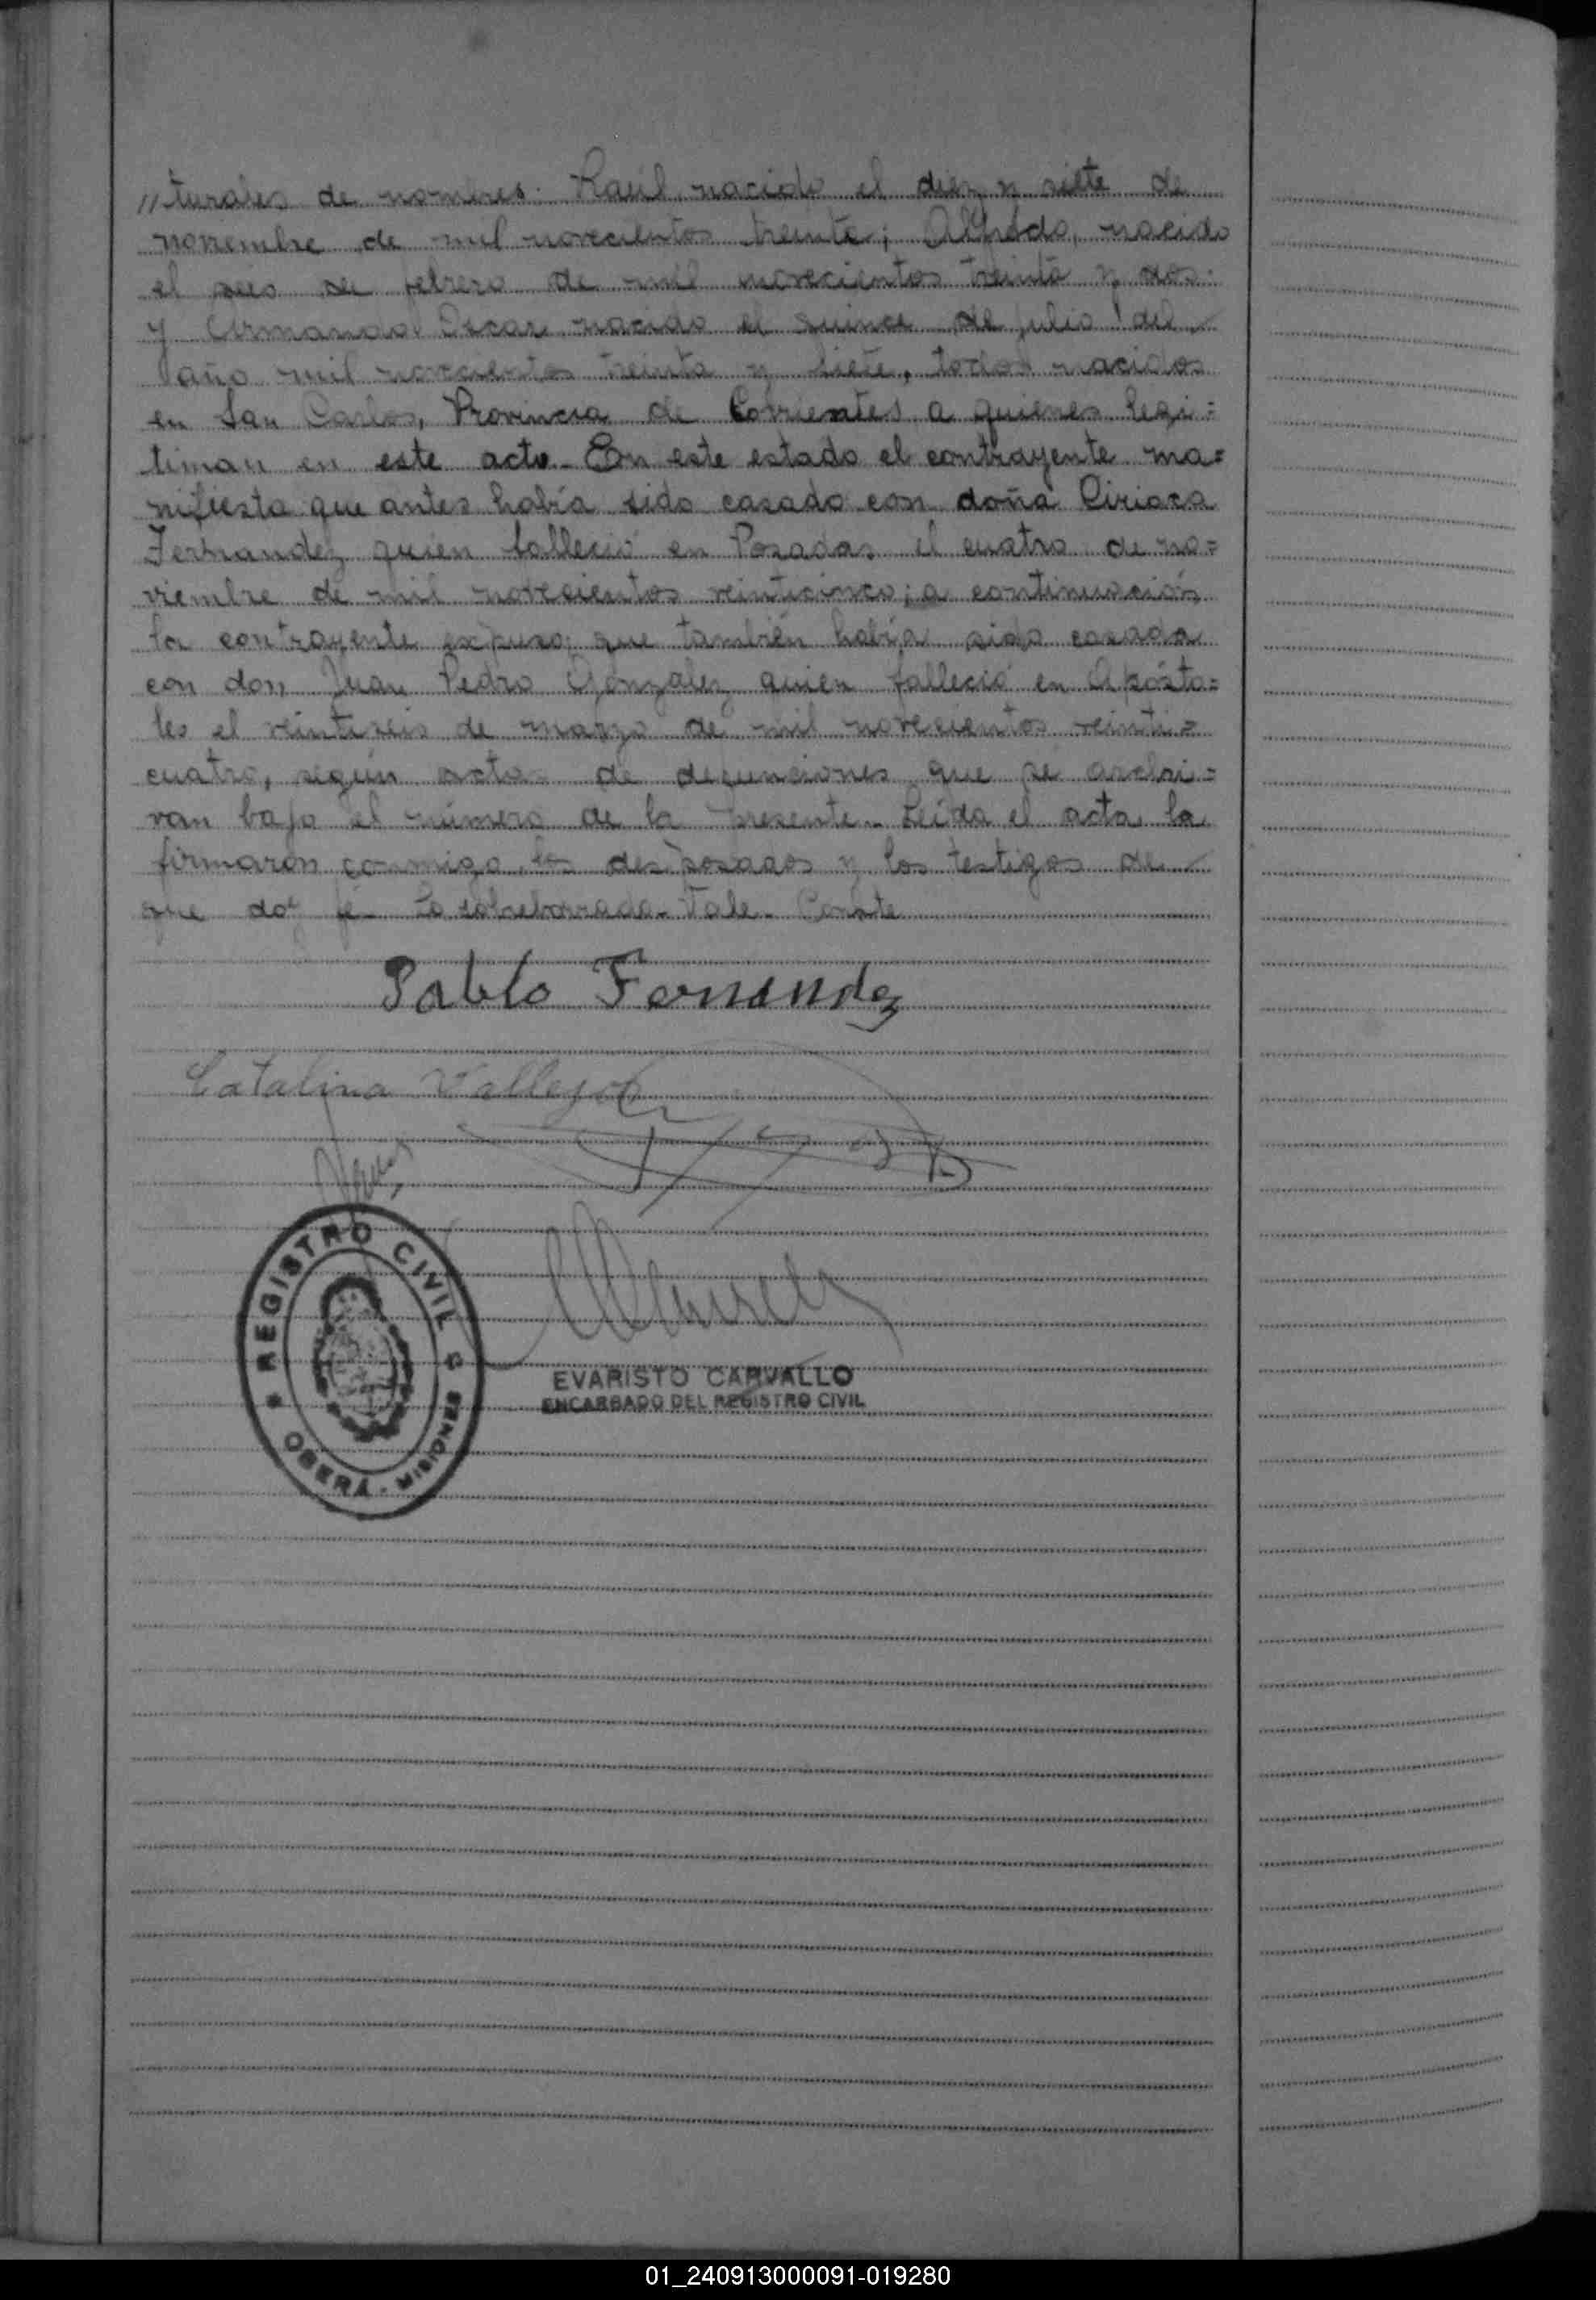 // turales de nombres: Raúl nacido el diez y siete de
noviembre de mil novecientos treinta; Alfredo, nacido
el seis de febrero de mil novecientos treinta y dos
y Armando Oscar nacido el quince de julio del
año mil novecientos treinta y siete, todos nacidos
en San Carlos, Provincia de Corrientes a quienes legi=
timan en este acto.- En este estado el contrayente ma=
nifiesta que antes había sido casado con doña Ciriaca
Fernandez quien falleció en Posadas el cuatro de no=
viembre de mil novecientos veinticinco; a continuación
la contrayente expuso que también había sido casada
con don Juan Pedro Gonzalez quien falleció en Apósto=
les el veintiseis de marzo de mil novecientos veinti=
cuatro, según actas de defunciones que se archi=
van bajo el número de la presente.- Leída el acta la
firmaron conmigo los desposados y los testigos de
que doy fé- Lo sobreborrado- Vale- Conste
Pablo Fernandez
Catalina Vallejos
REGISTRO CIVIL
OBERÁ - MISIONES
EVARISTO CARVALLO
ENCARGADO DEL REGISTRO CIVIL
01_240913000091-019280